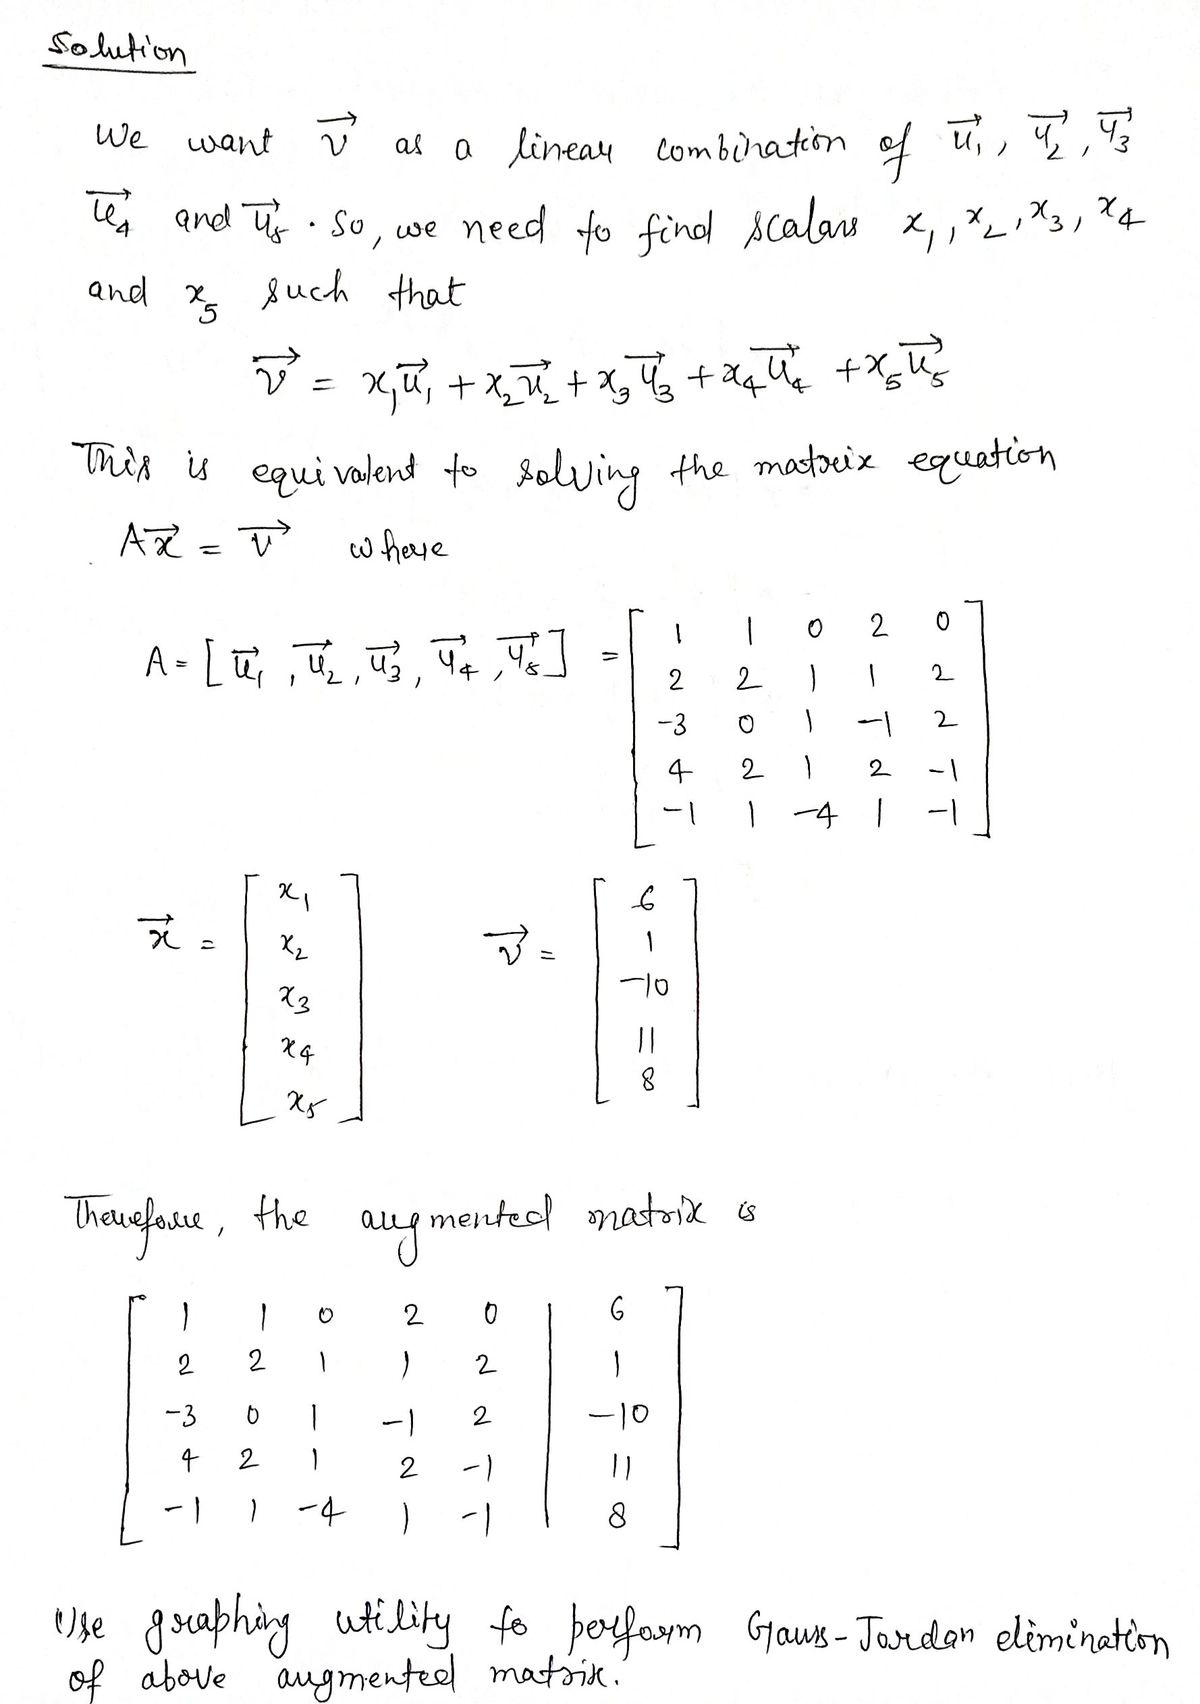 Solution
We want v⃗ as a linear combination of u⃗₁, u⃗₂, u⃗₃
u⃗₄ and u⃗₅. So, we need to find scalars x₁, x₂, x₃, x₄
and x₅ such that
v⃗ = x₁u⃗₁ + x₂u⃗₂ + x₃u⃗₃ + x₄u⃗₄ + x₅u⃗₅
This is equivalent to solving the matrix equation
Ax⃗ = v⃗ where
A = [u⃗₁, u⃗₂, u⃗₃, u⃗₄, u⃗₅] =
1 1 0 2 0
2 2 1 1 2
-3 0 1 -1 2
4 2 1 2 -1
-1 1 -4 1 -1
x⃗ =
x₁
x₂
x₃
x₄
x₅
v⃗ =
6
1
-10
11
8
Therefore, the augmented matrix is
1 1 0 2 0 | 6
2 2 1 1 2 | 1
-3 0 1 -1 2 | -10
4 2 1 2 -1 | 11
-1 1 -4 1 -1 | 8
Use graphing utility to perform Gauss-Jordan elimination
of above augmented matrix.